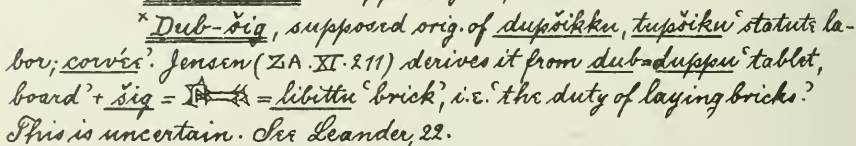 ×Dub-šig, supposed orig. of dupšikku, tupšiku ‘statute la-
bor; corvée’. Jensen (ZA. XI. 211) derives it from dub = duppu ‘tablet,
board’ + šig = = libittu ‘brick’, i.e. ‘the duty of laying bricks.’
This is uncertain. See Leander, 22.